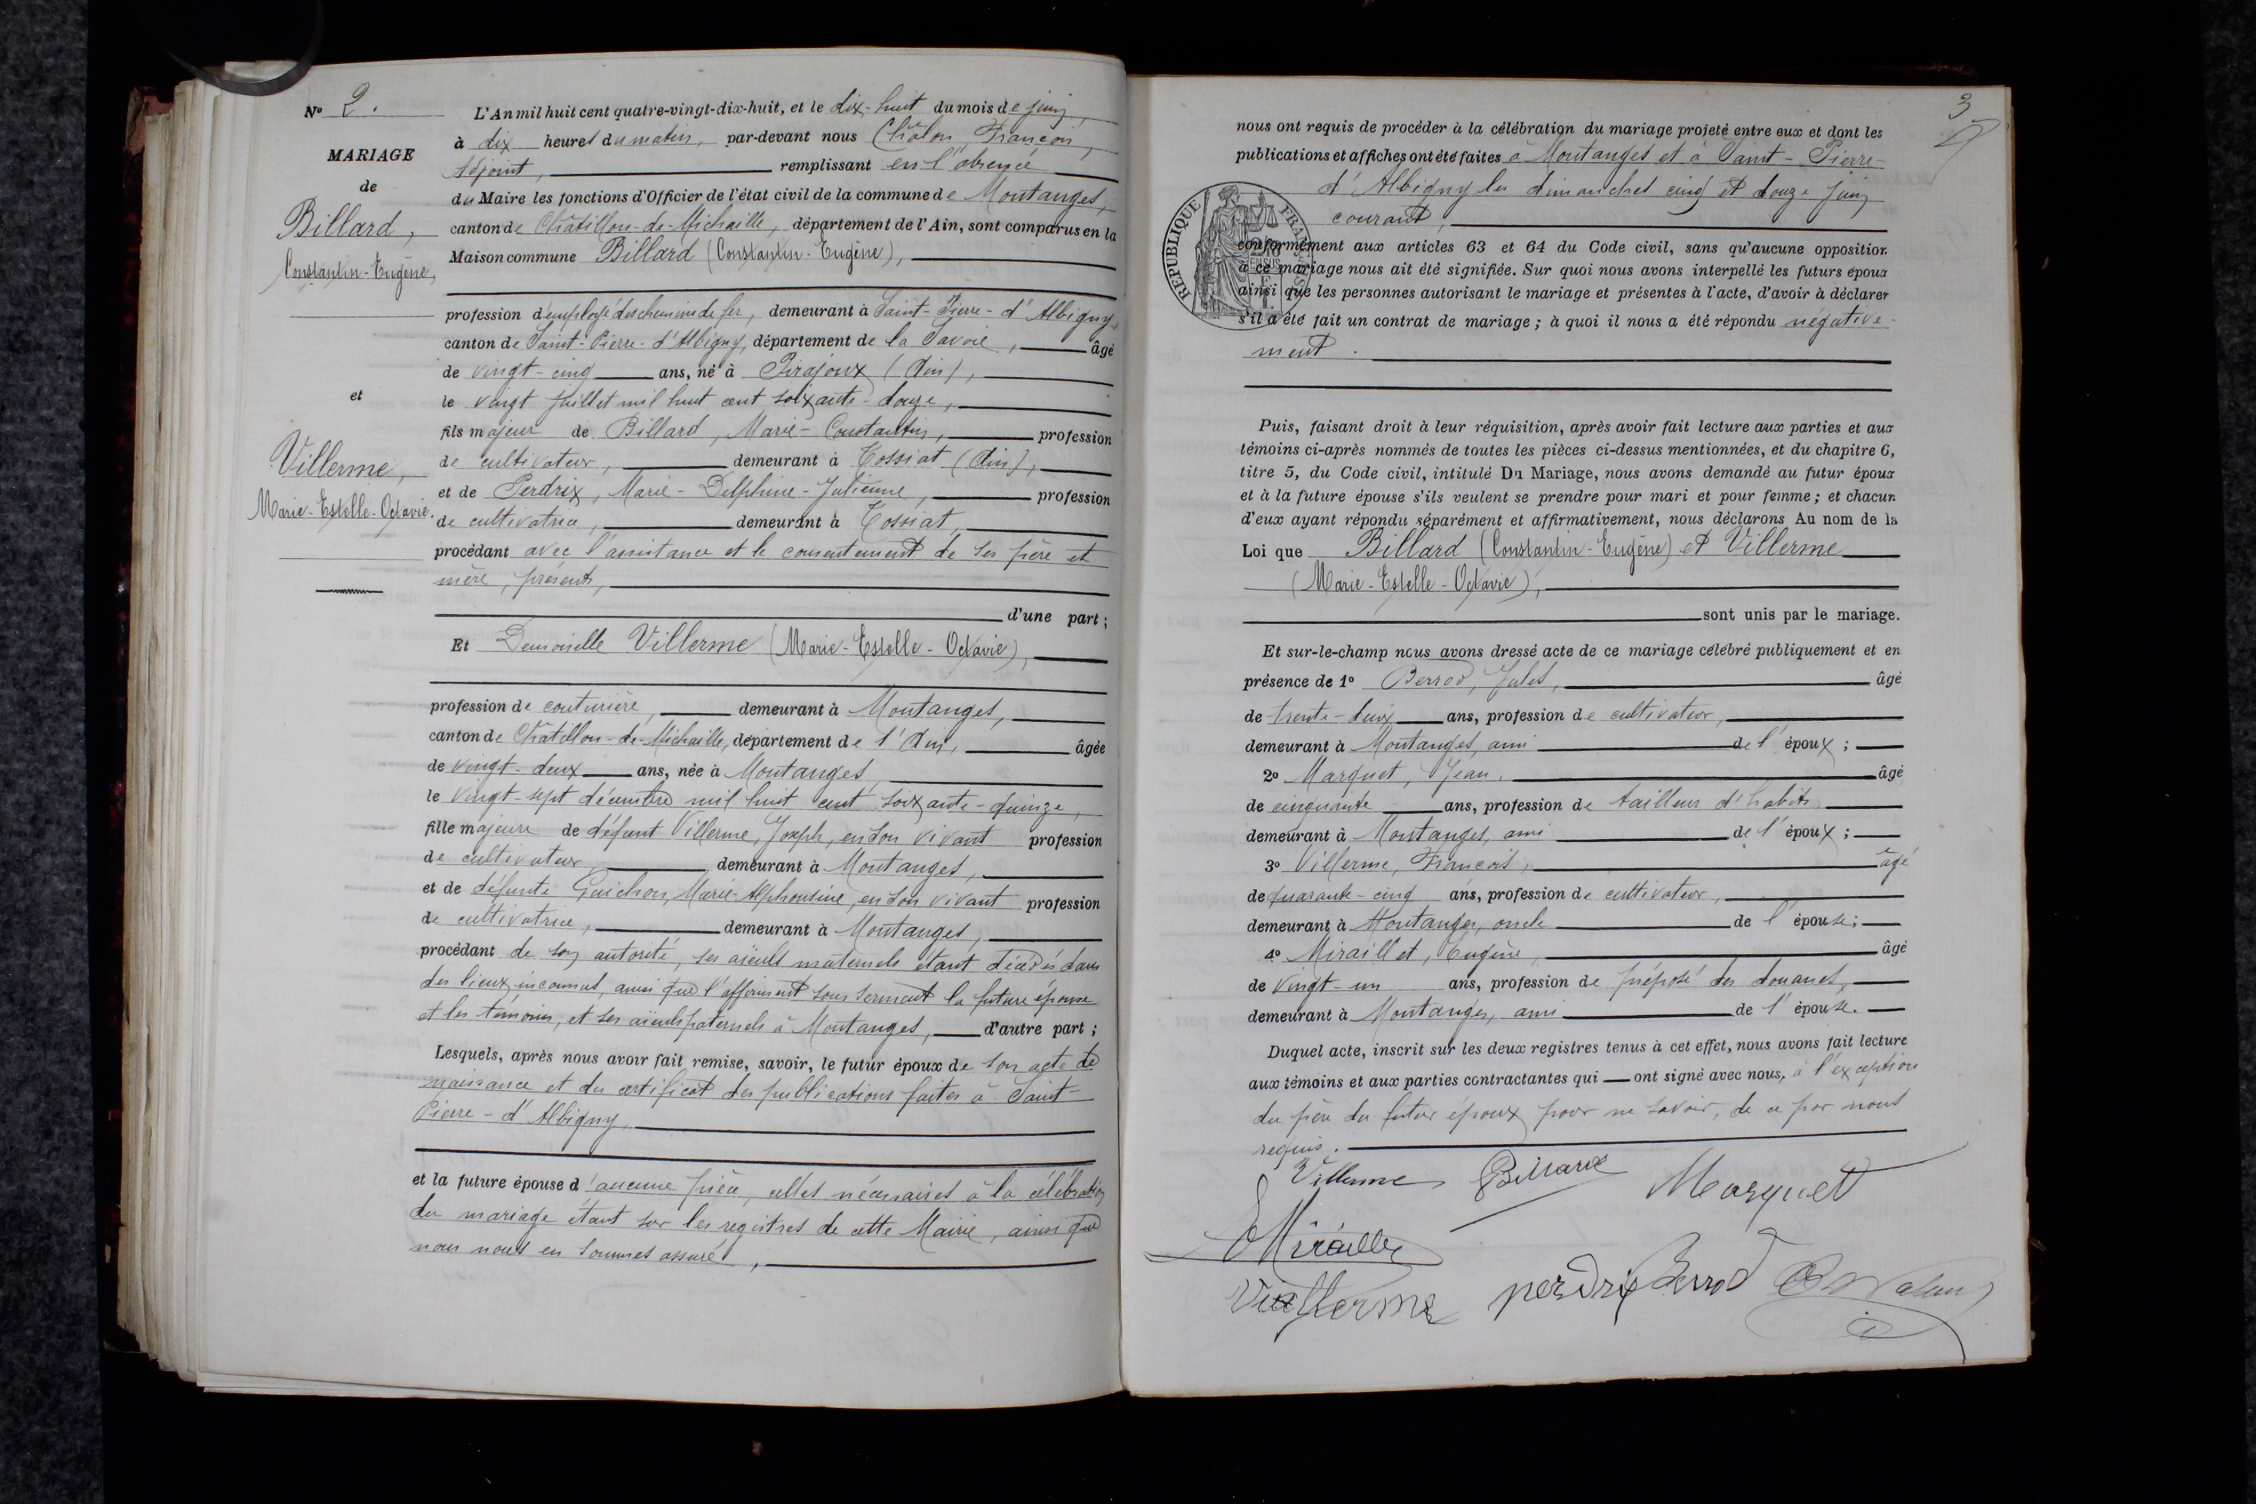 Nº 2.
MARIAGE
de
Billard,
Constantin-Eugène,
et
Villerme,
Marie-Estelle-Octavie.
L'An mil huit cent quatre-vingt-dix-huit, et le dix-huit du mois de juin,
à dix heures du matin, par-devant nous Châlon, François,
adjoint, remplissant en l'absence
du Maire les fonctions d'Officier de l'état civil de la commune de Montanges,
canton de Châtillon-de-Michaille, département de l'Ain, sont comparus en la
Maison commune Billard (Constantin-Eugène),
profession d'employé des chemins de fer, demeurant à Saint-Pierre-d'Albigny,
canton de Saint-Pierre-d'Albigny, département de la Savoie, âgé
de vingt-cinq ans, né à Pirajoux (Ain),
le vingt juillet mil huit cent soixante-douze,
fils majeur de Billard, Marie-Constantin, profession
de cultivateur, demeurant à Tossiat (Ain),
et de Perdrix, Marie-Delphine-Julienne, profession
de cultivatrice, demeurant à Tossiat,
procédant avec l'assistance et le consentement de ses père et
mère, présents,
d'une part;
Et Demoiselle Villerme (Marie-Estelle-Octavie),
profession de couturière, demeurant à Montanges,
canton de Châtillon-de-Michaille, département de l'Ain, âgée
de vingt-deux ans, née à Montanges
le vingt-sept décembre mil huit cent soixante-quinze,
fille majeure de défunt Villerme, Joseph, en son vivant profession
de cultivateur demeurant à Montanges,
et de défunte Guichon, Marie-Alphonsine, en son vivant profession
de cultivatrice, demeurant à Montanges,
procédant de son autorité, ses aïeuls maternels étant décédés dans
des lieux inconnus, ainsi que l'affirment sous serment la future épouse
et les témoins, et ses aïeuls paternels à Montanges, d'autre part;
Lesquels, après nous avoir fait remise, savoir, le futur époux de son acte de
naissance et du certificat des publications faites à Saint-
Pierre-d'Albigny,
et la future épouse d'aucune pièce, celles nécessaires à la célébration
du mariage étant sur les registres de cette Mairie, ainsi que
nous nous en sommes assuré,
3
nous ont requis de procéder à la célébration du mariage projeté entre eux et dont les
publications et affiches ont été faites à Montanges et à Saint-Pierre-
d'Albigny les dimanches cinq et douze juin
courant,
RÉPUBLIQUE FRANÇAISE
conformément aux articles 63 et 64 du Code civil, sans qu'aucune opposition
à ce mariage nous ait été signifiée. Sur quoi nous avons interpellé les futurs époux
ainsi que les personnes autorisant le mariage et présentes à l'acte, d'avoir à déclarer
s'il a été fait un contrat de mariage; à quoi il nous a été répondu négative-
ment.
Puis, faisant droit à leur réquisition, après avoir fait lecture aux parties et aux
témoins ci-après nommés de toutes les pièces ci-dessus mentionnées, et du chapitre 6,
titre 5, du Code civil, intitulé Du Mariage, nous avons demandé au futur époux
et à la future épouse s'ils veulent se prendre pour mari et pour femme; et chacun
d'eux ayant répondu séparément et affirmativement, nous déclarons Au nom de la
Loi que Billard (Constantin-Eugène) et Villerme
(Marie-Estelle-Octavie),
sont unis par le mariage.
Et sur-le-champ nous avons dressé acte de ce mariage célébré publiquement et en
présence de 1º Berrod, Jules, âgé
de trente-deux ans, profession de cultivateur,
demeurant à Montanges, ami de l'époux;
2º Marquet, Jean, âgé
de cinquante ans, profession de tailleur d'habits,
demeurant à Montanges, ami de l'époux;
3º Villerme, François, âgé
de quarante-cinq ans, profession de cultivateur,
demeurant à Montanges, oncle de l'épouse;
4º Miraillet, Eugène, âgé
de vingt-un ans, profession de préposé des douanes,
demeurant à Montanges, ami de l'épouse.
Duquel acte, inscrit sur les deux registres tenus à cet effet, nous avons fait lecture
aux témoins et aux parties contractantes qui ont signé avec nous, à l'exception
du père du futur époux pour ne savoir, de ce par nous
requis.
Villerme Billard Marquet
Villerme perdrix Berrod